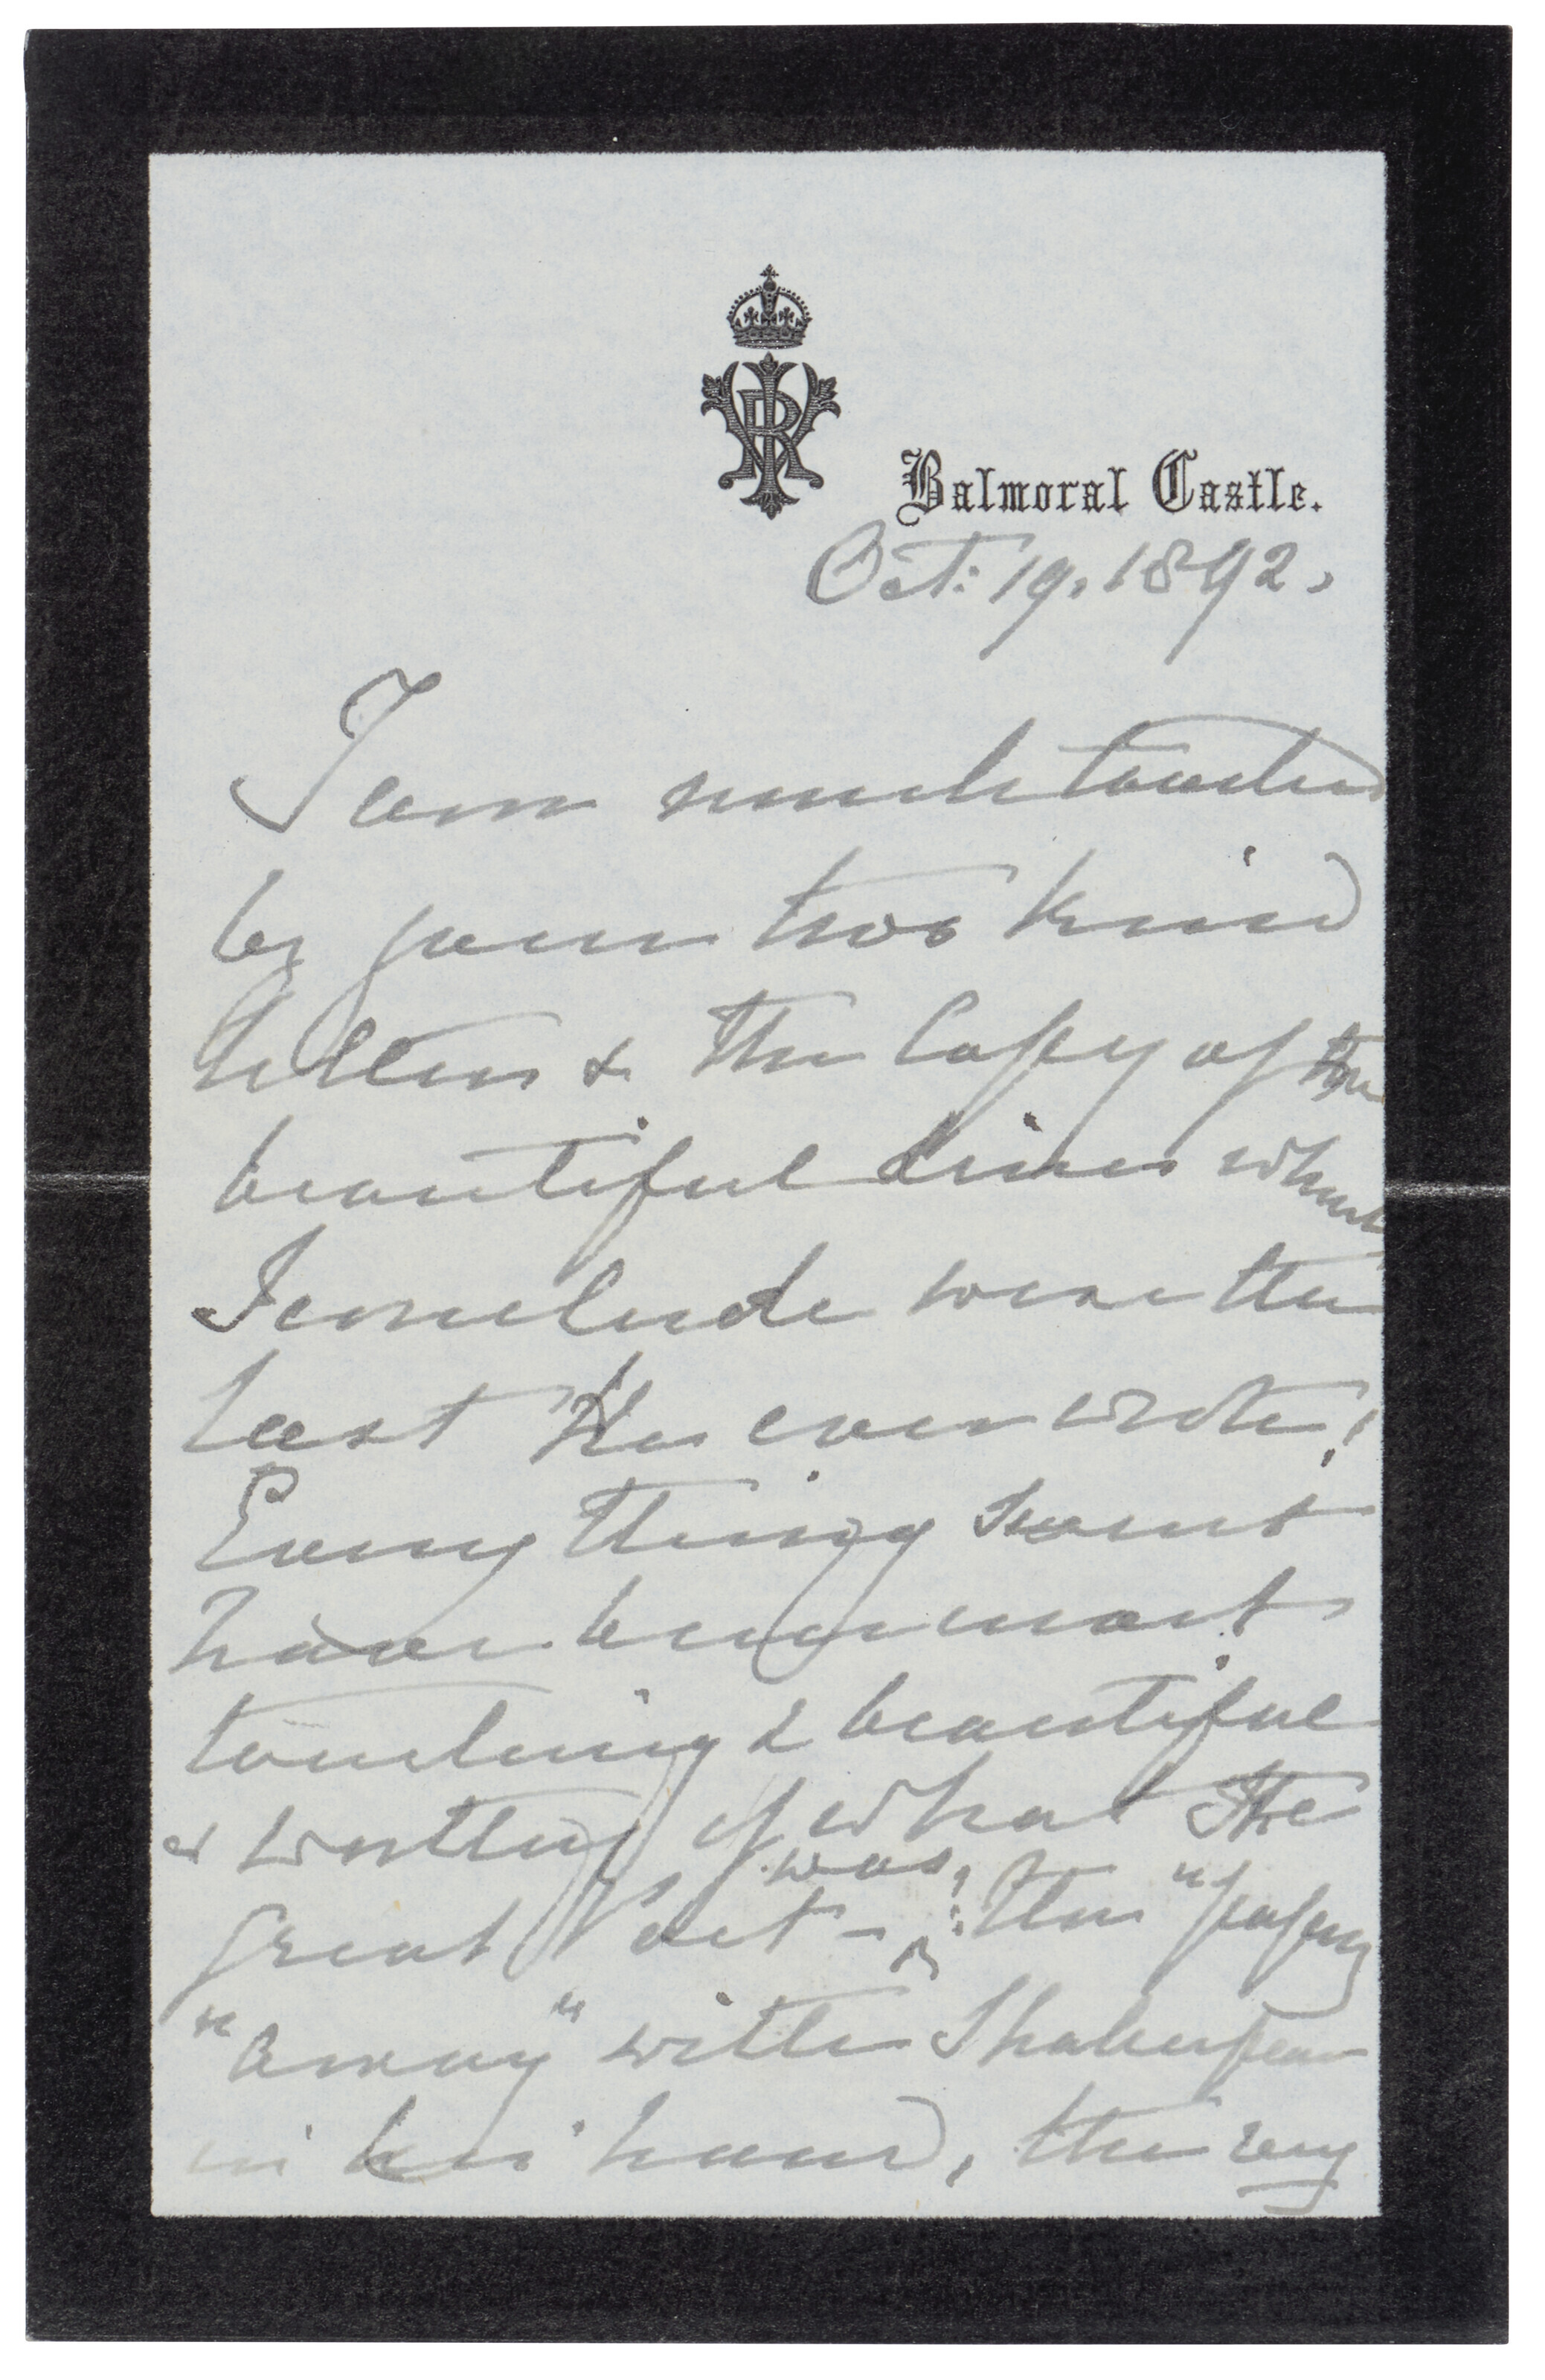 VRI
Balmoral Castle.
Oct: 19. 1892.
I am much touched
by your two kind
letters & the Copy of the
beautiful lines which
I conclude were the
last He ever wrote!
Every thing seems
have been most
touching & beautiful
& worthy of what the
great Poet – was, : the "passing
"away" with Shakespear
in his hand, the very